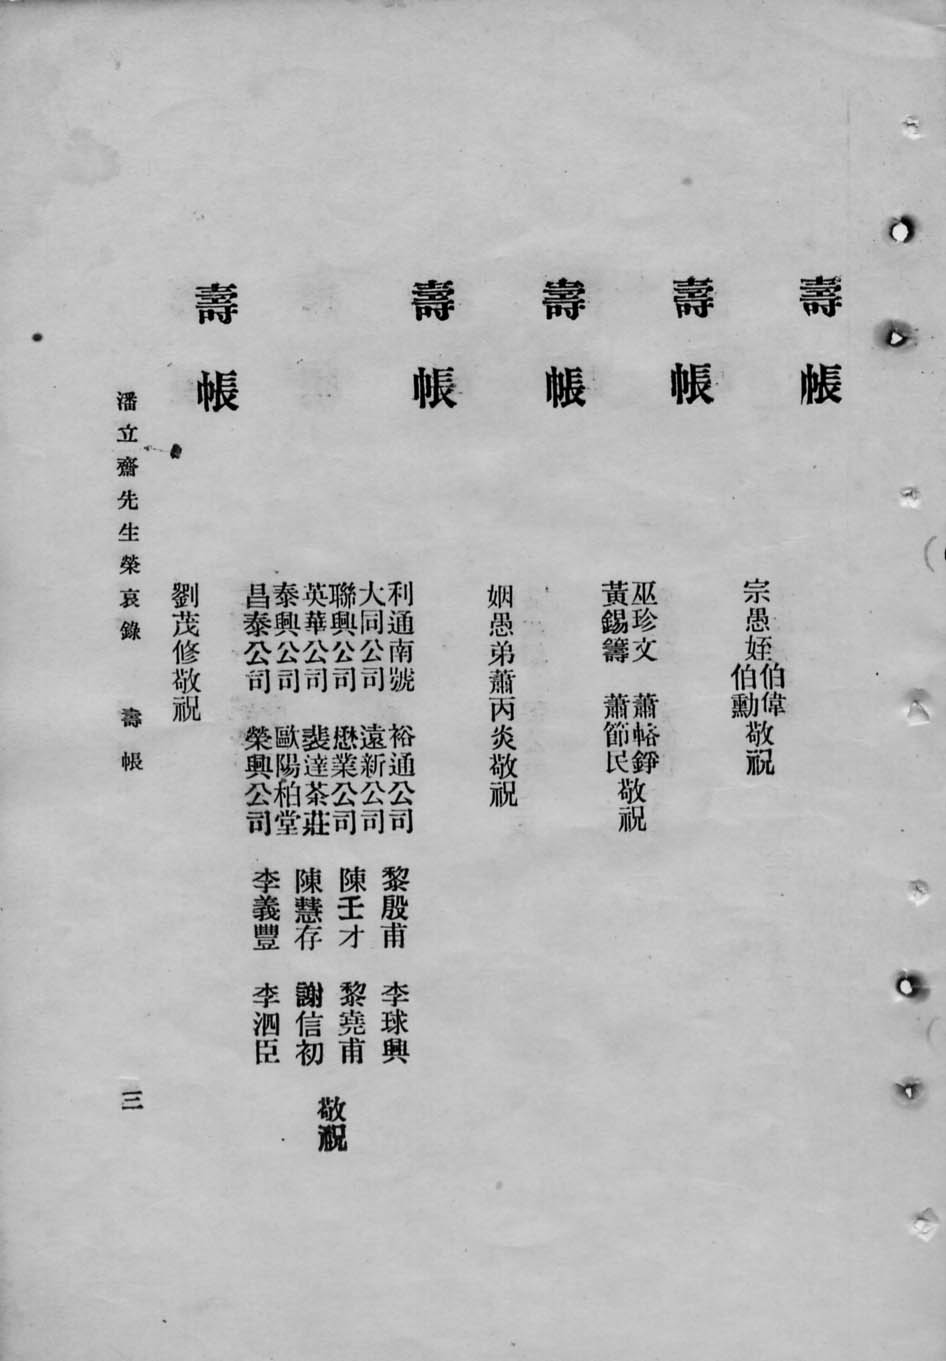 壽帳
宗愚姪伯偉
伯勳敬祝
壽帳
巫珍文 蕭輅錚
黃錫籌 蕭節民敬祝
壽帳
姻愚弟蕭丙炎敬祝
壽帳
利通南號 裕通公司 黎殷甫 李球興
大同公司 遠新公司
聯興公司 懋業公司 陳壬才 黎堯甫
英華公司 裴達茶莊 敬祝
泰興公司 歐陽柏堂 陳慧存 謝信初
昌泰公司 榮興公司 李義豐 李泗臣
壽帳
劉茂修敬祝
潘立齋先生榮哀錄 壽帳 三